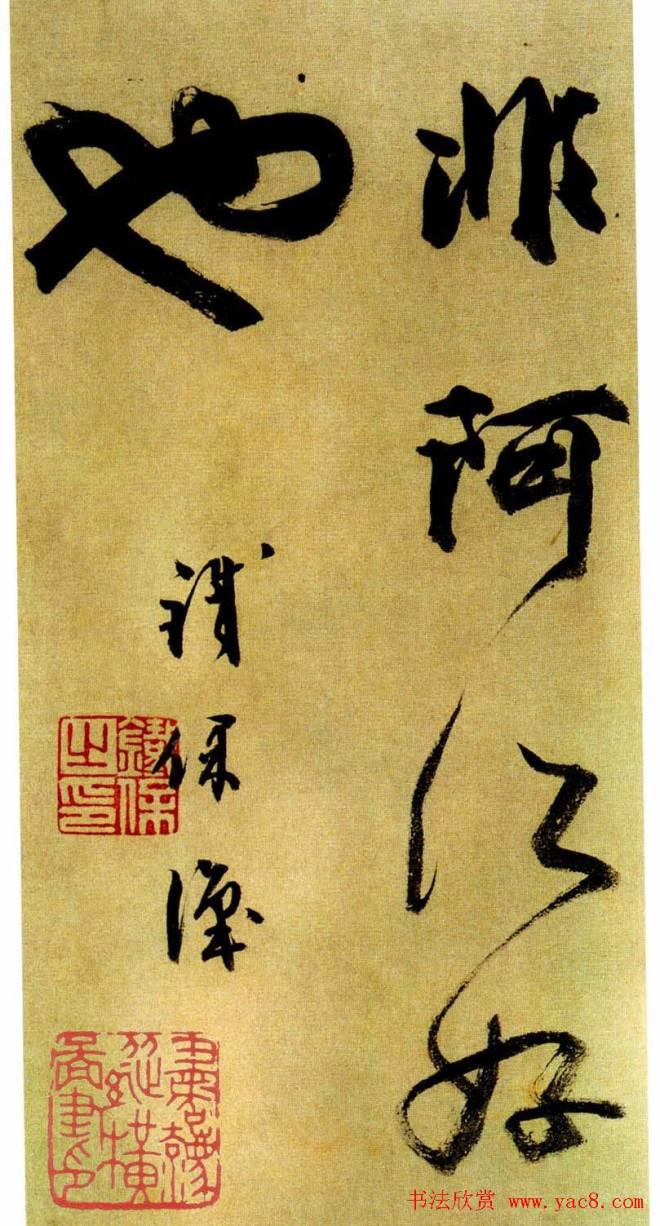 非阿所好
也
鐵保識
鐵保之印
书法欣赏 www.yac8.com